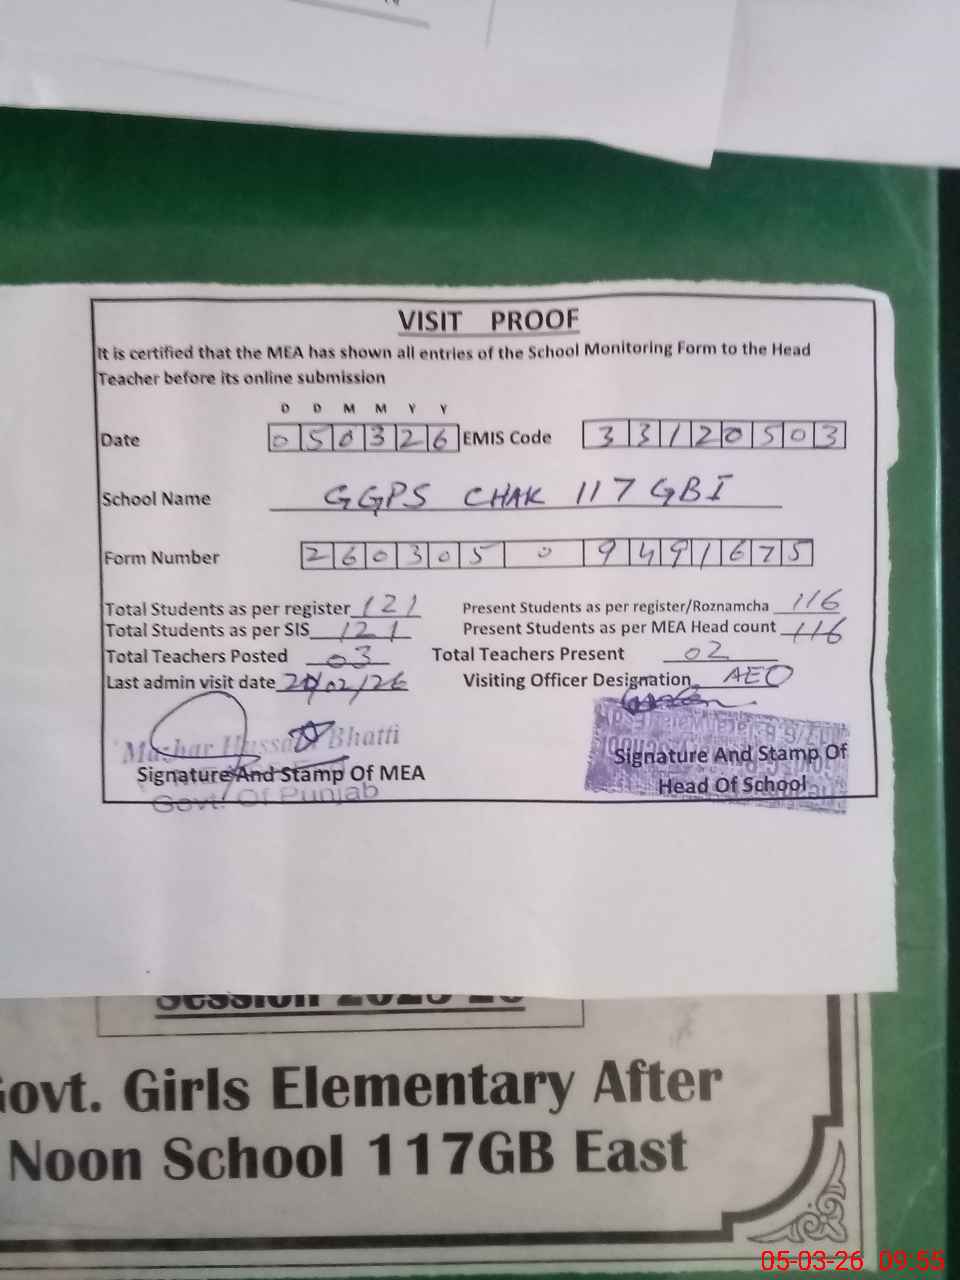 VISIT PROOF
It is certified that the MEA has shown all entries of the School Monitoring Form to the Head
Teacher before its online submission
D D M M Y Y
Date 050326 EMIS Code 33120503
School Name GGPS CHAK 117 GBI
Form Number 260305 0 9491675
Total Students as per register 121 Present Students as per register/Roznamcha 116
Total Students as per SIS 121 Present Students as per MEA Head count 116
Total Teachers Posted 03 Total Teachers Present 02
Last admin visit date /02/26 Visiting Officer Designation AEO
Mazhar Hussain Bhatti
Signature And Stamp Of MEA Signature And Stamp Of
Govt. Of Punjab Head Of School
Session 2025-26
Govt. Girls Elementary After
Noon School 117GB East
05-03-26 09:55